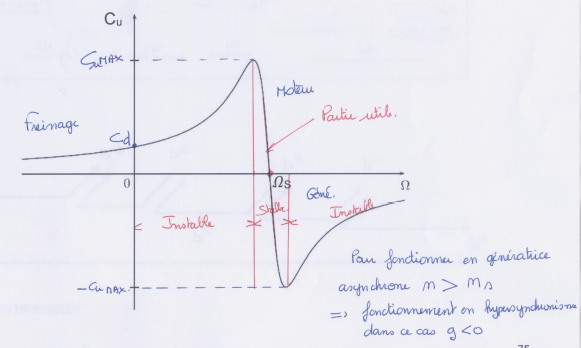 Cu
CuMAX
Moteur
Freinage
Partie util.
Cd
0
Ωs
Ω
Géné.
Instable
Stable
Instable
-CuMAX
Pour fonctionner en génératrice
asynchrone n > ns
=> fonctionnement en hypersynchronisme
dans ce cas g < 0
75